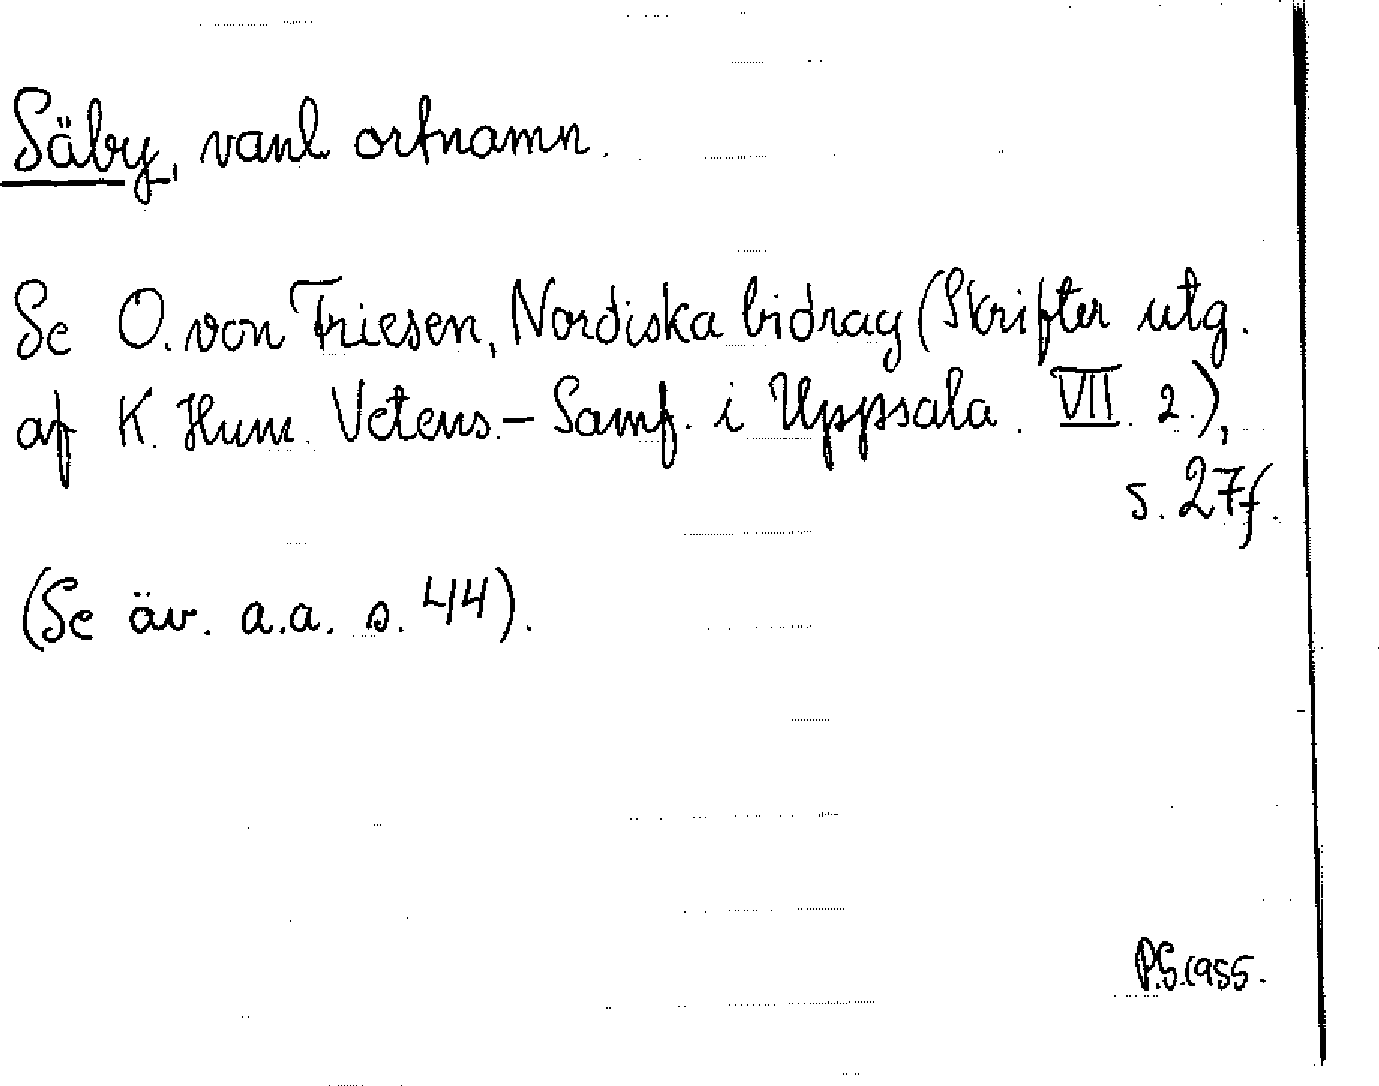 Säby, vanl ortnamn.
Se O. von Friesen, Nordiska bidrag (Skrifter utg.
af K. Hum. Vetens.- Samf. i Uppsala. VII. 2.),
s. 27f.
(Se äv. a.a. s. 44).
P.S. 1955.